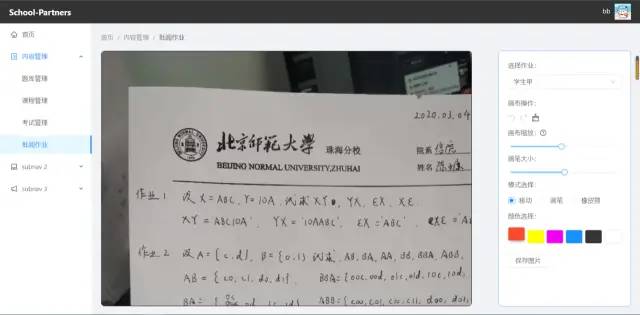 School-Partners
bb
首页
内容管理
题库管理
课程管理
考试管理
批阅作业
subnav 2
subnav 3
首页 / 内容管理 / 批阅作业
2020.03.04
北京师范大学 珠海分校
BEIJING NORMAL UNIVERSITY,ZHUHAI
院系
姓名
作业 1 设 X = ABC, Y = 10A, 试求 XY, YX, EX, XE.
XY = ABC10A' YX = '10AABC' EX = 'ABC'
作业 2 设 A = {c.d}, B = {0.1} 试求 AB, BA, AA, BB, BBA, ABB,
AB = { c0, c1, d0, d1} BBA = {00c, 00d, 01c, 01d, 10c, 10d,
BA = ABB = { c00, c01, c10, c11, d00, d01,
选择作业：
学生甲
画布操作：
画布缩放：
画笔大小：
模式选择：
移动 画笔 橡皮擦
颜色选择：
保存图片